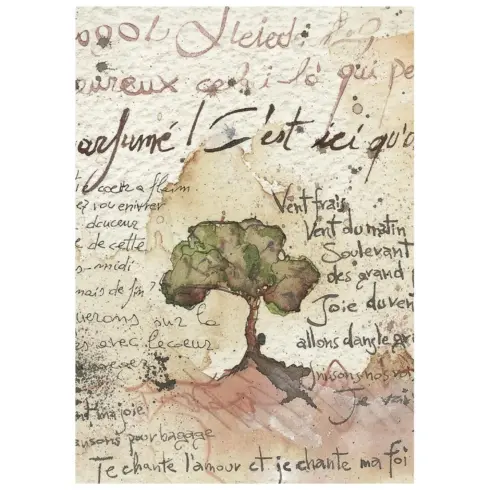 oureux celui là qui pe
arfumé ! C'est ici qu'o
le cœur a faim
s'y vou enivrer
douceur
e de cette
-midi
mais de fin ?
uerons sur la
s avec le cœur
Vent frais,
Vent du matin
Soulevant
des grand
Joie du ven
allons dans le gra
unisons nos vo
Je vai
nt ma joie
ansons pour bagage
Je chante l'amour et je chante ma foi